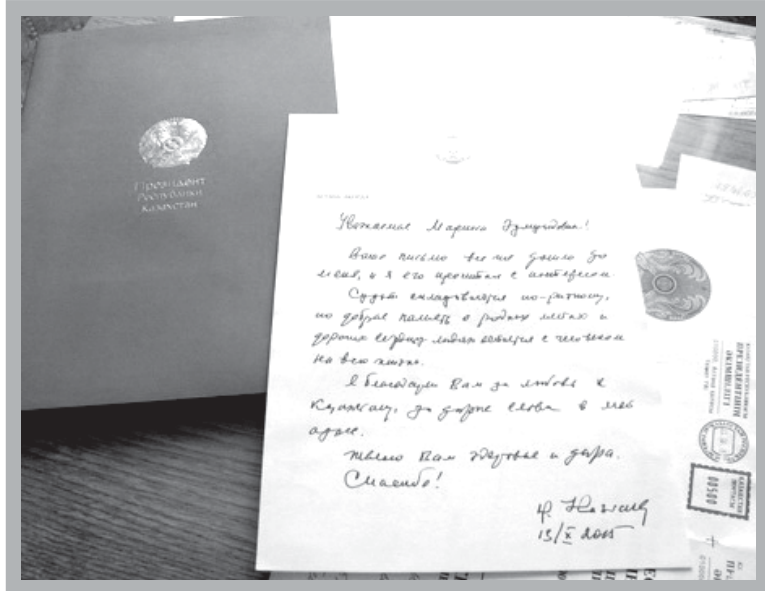 Президент
Республики
Казахстан
Уважаемая Марина Эдмундовна!
Ваше письмо все же дошло до
меня, и я его прочитал с интересом.
Судьба складывается по-разному,
но добрая память о родных местах и
дорогих сердцу людях остается с человеком
на всю жизнь.
Я благодарен Вам за любовь к
Казахстану, за добрые слова в мой
адрес.
Желаю Вам здоровья и добра.
Спасибо!
Н. Назарб
13/X 2005
ПРЕЗИДЕНТІНІҢ
ӘКІМШІЛІГІ
КАЗАХСТАН
00500